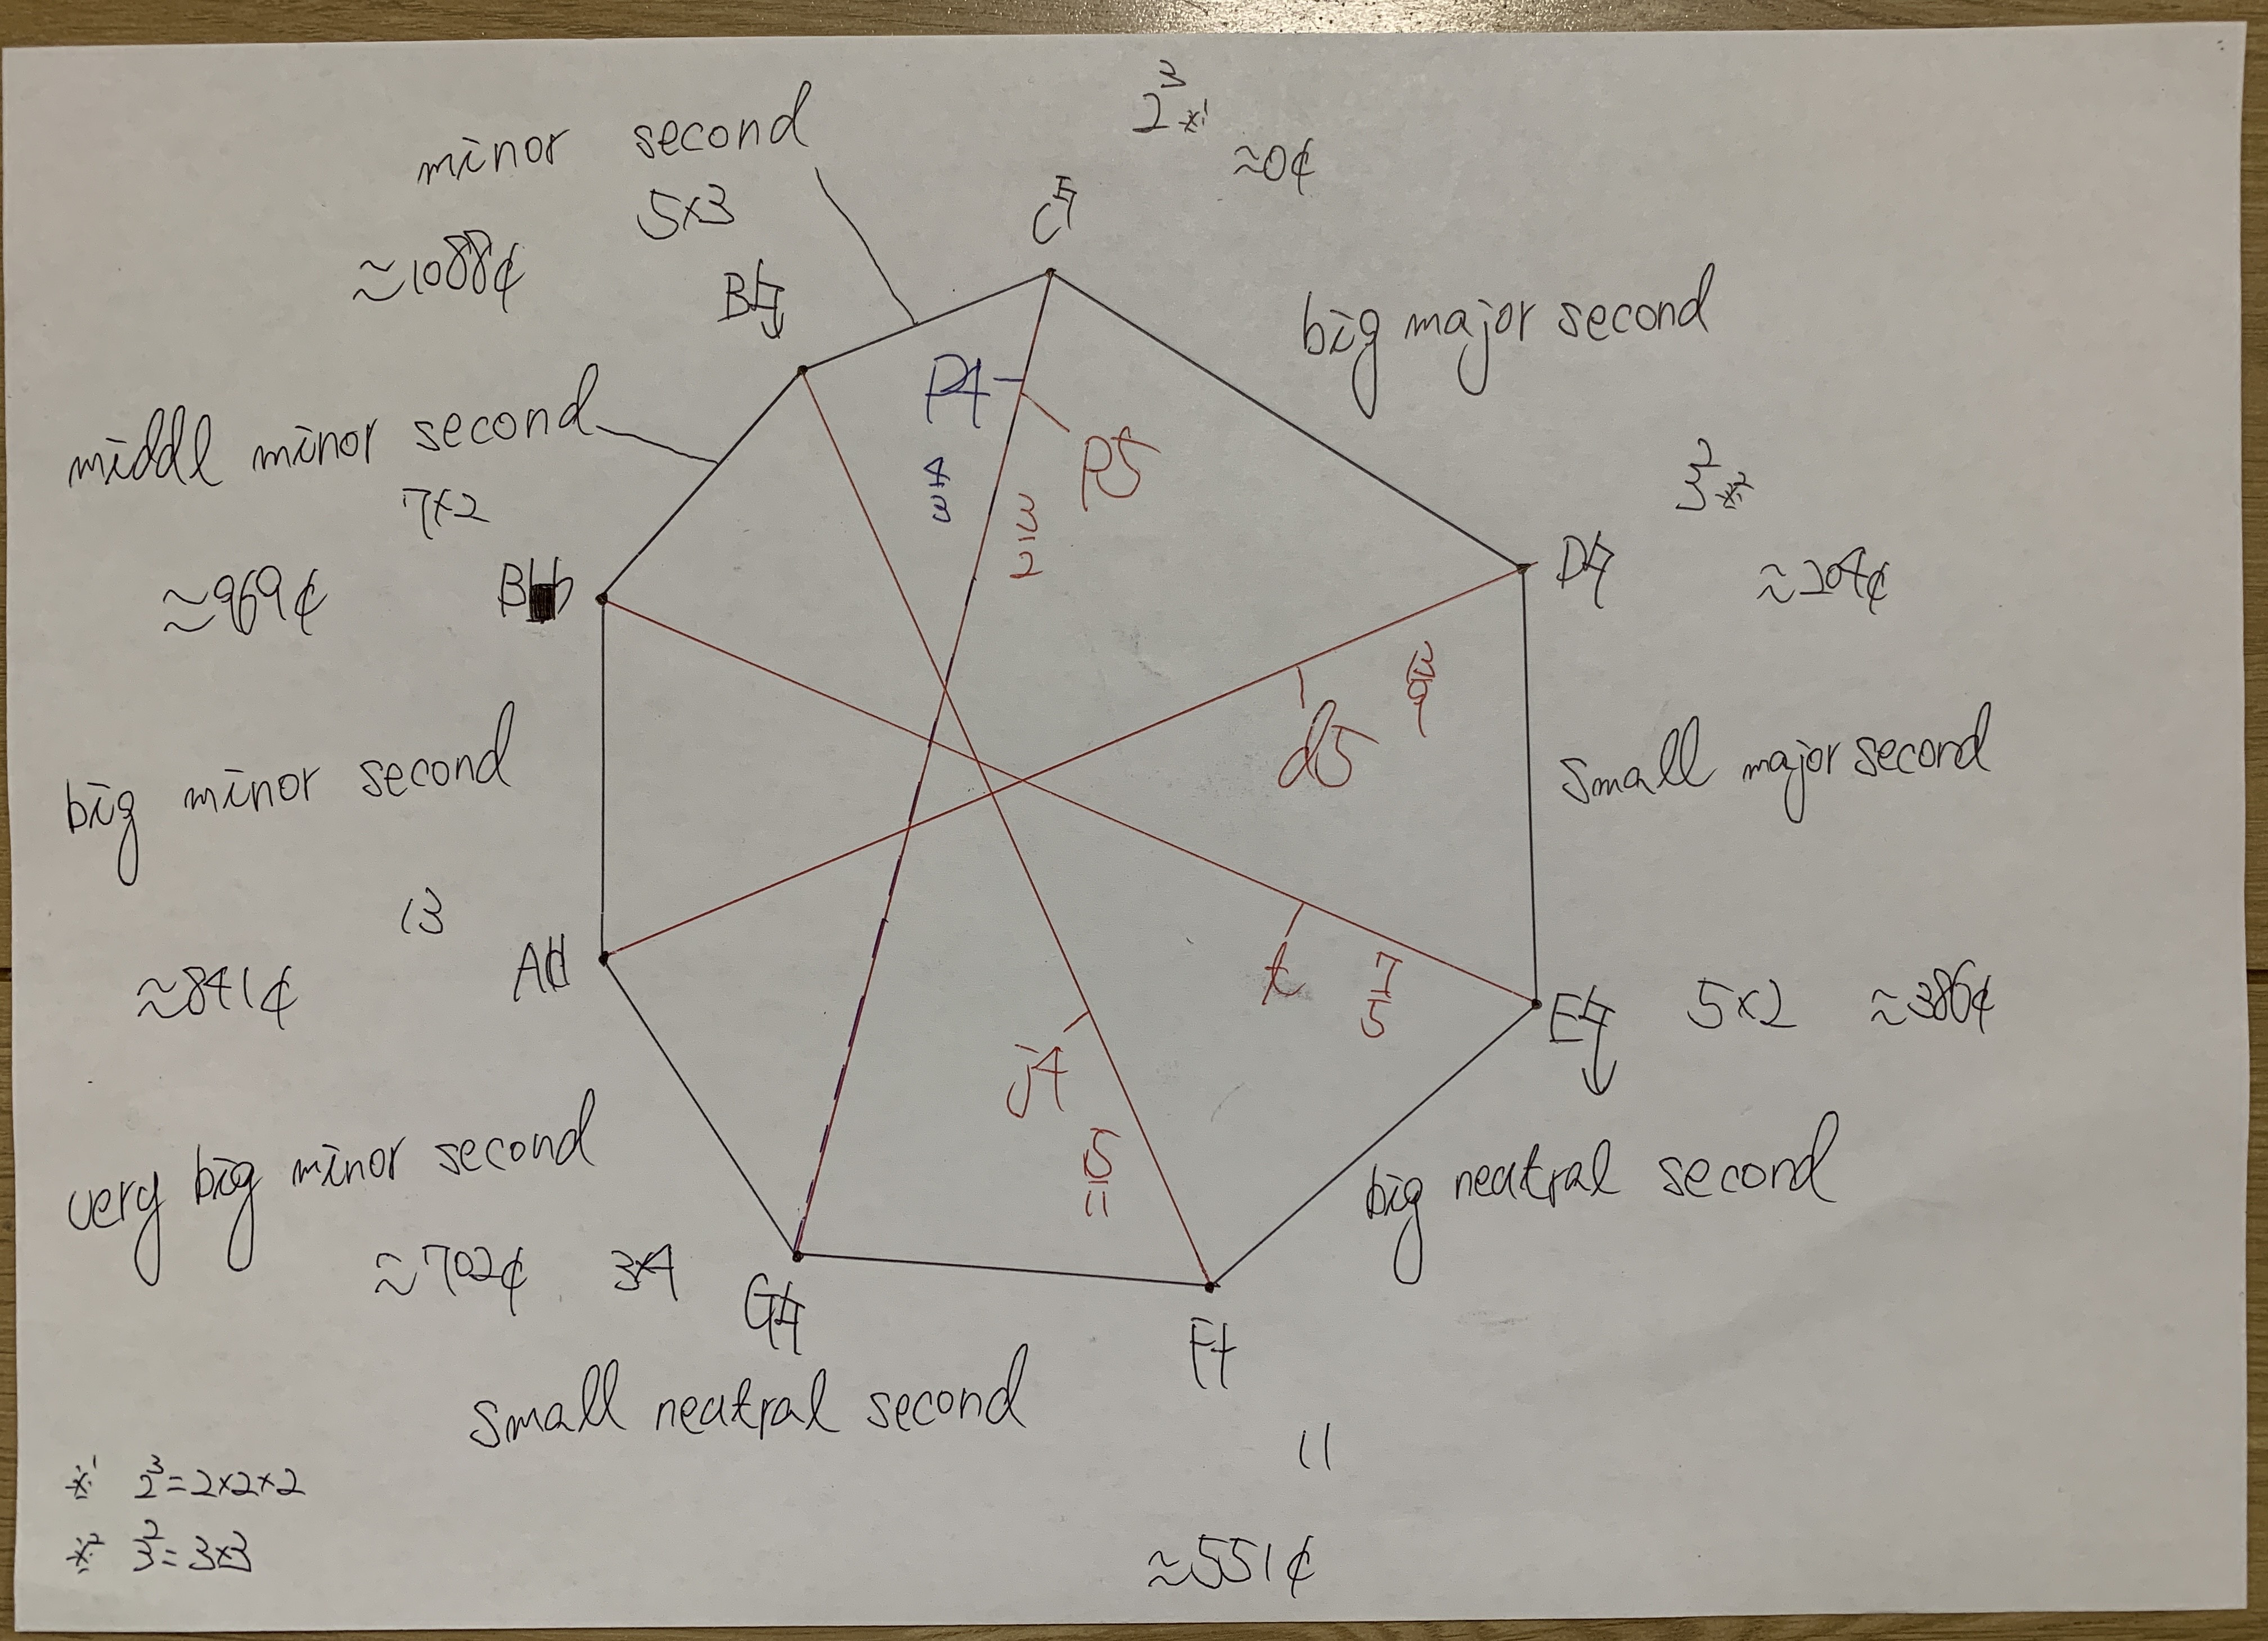 2³ ※1
≈0¢
minor second
5×3
≈1088¢
C♮
B♮↓
big major second
P4
4
3
P5
3
2
middl minor second
7×2
≈969¢
3² ※2
D♮
≈204¢
13
9
d5
big minor second
small major second
13
≈841¢
t
7
5
E♮↓ 5×2 ≈386¢
j4
15
11
very big minor second
big neutral second
≈702¢ 3×4
G♮
small neutral second
11
※1 2³=2×2×2
※2 3²=3×3
≈551¢